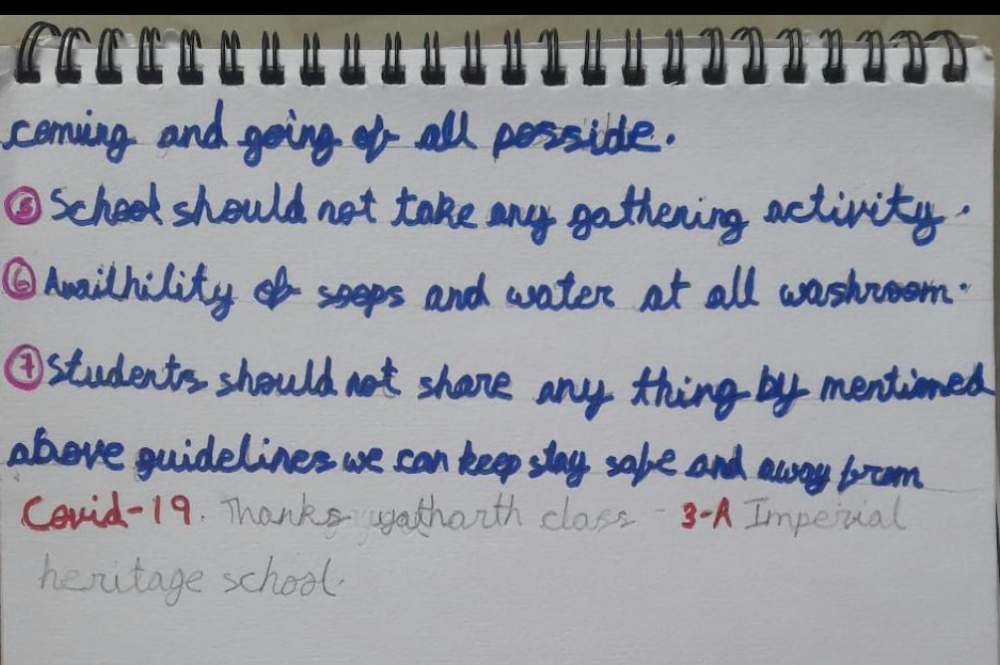 coming and going of all posside.
⑤ School should not take any gathering activity.
⑥ Avaithility of soops and water at all washroom.
⑦ Students should not share any thing by mentioned
above guidelines we can keep stay safe and away from
Covid-19. Thanks yatharth class - 3-A Imperial
heritage school.